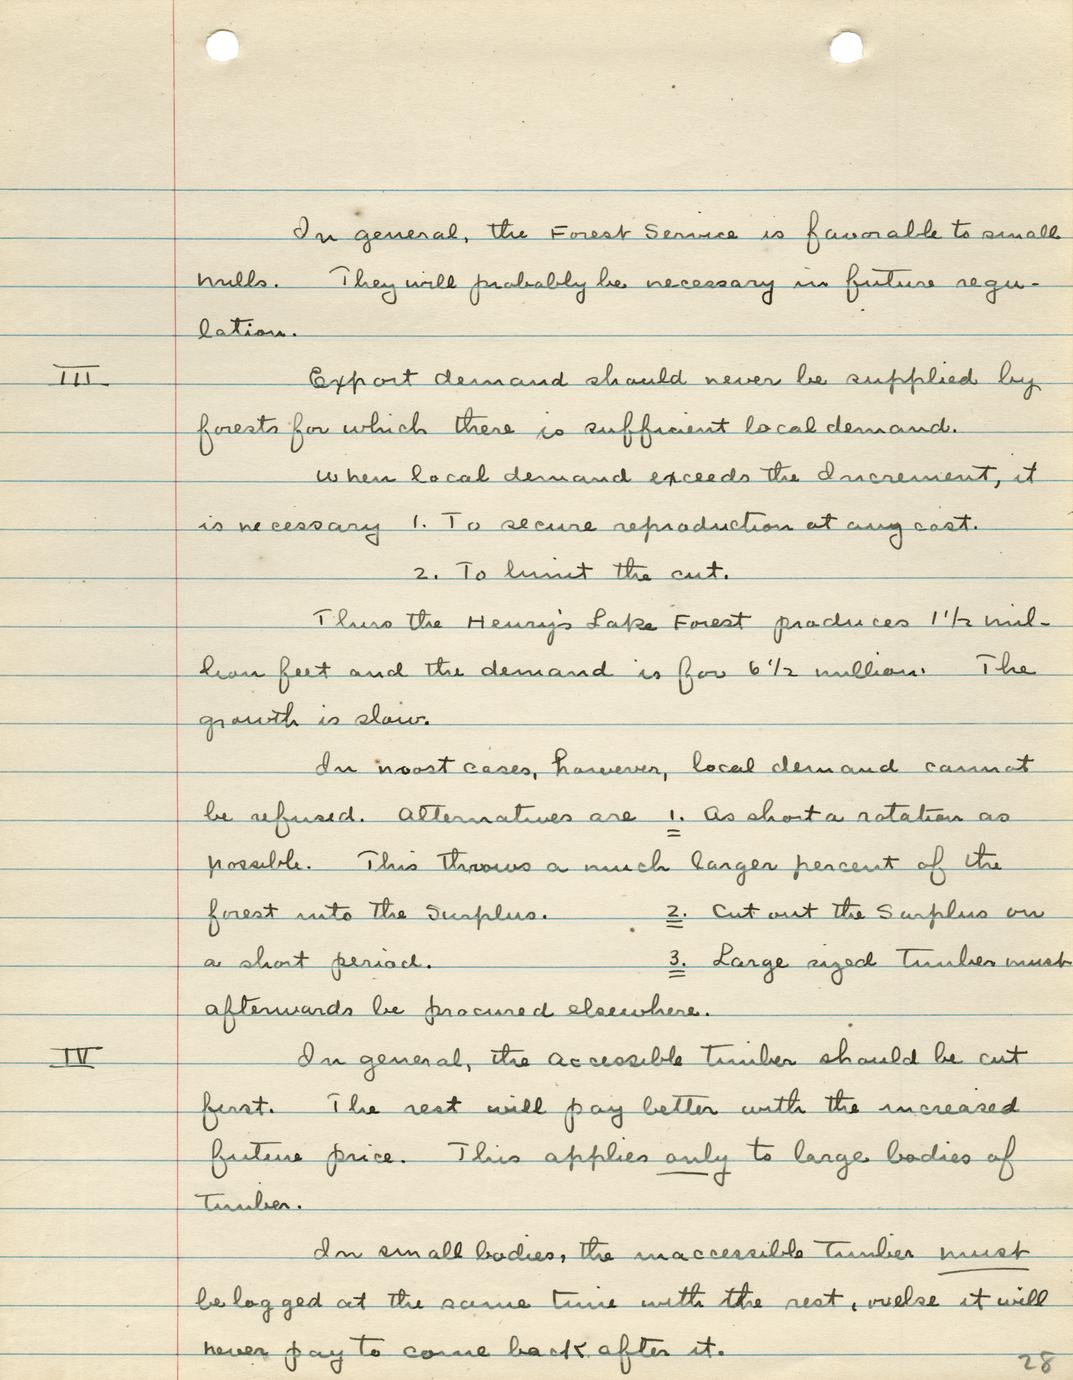 In general, the Forest Service is favorable to small
mills. They will probably be necessary in future regu-
lation.
III Export demand should never be supplied by
forests for which there is sufficient local demand.
When local demand exceeds the Increment, it
is necessary 1. To secure reproduction at any cost.
2. To limit the cut.
Thus the Henry's Lake Forest produces 1 1/2 mil-
lion feet and the demand is for 6 1/2 million. The
growth is slow.
In most cases, however, local demand cannot
be refused. Alternatives are 1. As short a rotation as
possible. This throws a much larger percent of the
forest into the Surplus. 2. Cut out the Surplus on
a short period. 3. Large sized timber must
afterwards be procured elsewhere.
IV In general, the accessible timber should be cut
first. The rest will pay better with the increased
future price. This applies only to large bodies of
timber.
In small bodies, the inaccessible timber must
be logged at the same time with the rest, orelse it will
never pay to come back after it.
28